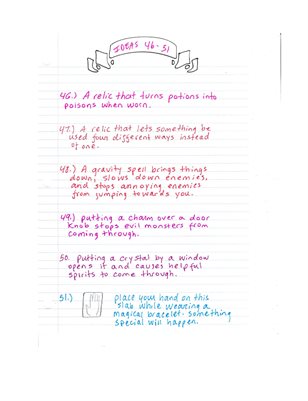 IDEAS 46-51
46.) A relic that turns potions into
poisons when worn.
47.) A relic that lets something be
used four different ways instead
of one.
48.) A gravity spell brings things
down, slows down enemies,
and stops annoying enemies
from jumping towards you.
49.) putting a charm over a door
knob stops evil monsters from
coming through.
50. putting a crystal by a window
opens it and causes helpful
spirits to come through.
51.) place your hand on this
slab while wearing a
magical bracelet. Something
special will happen.